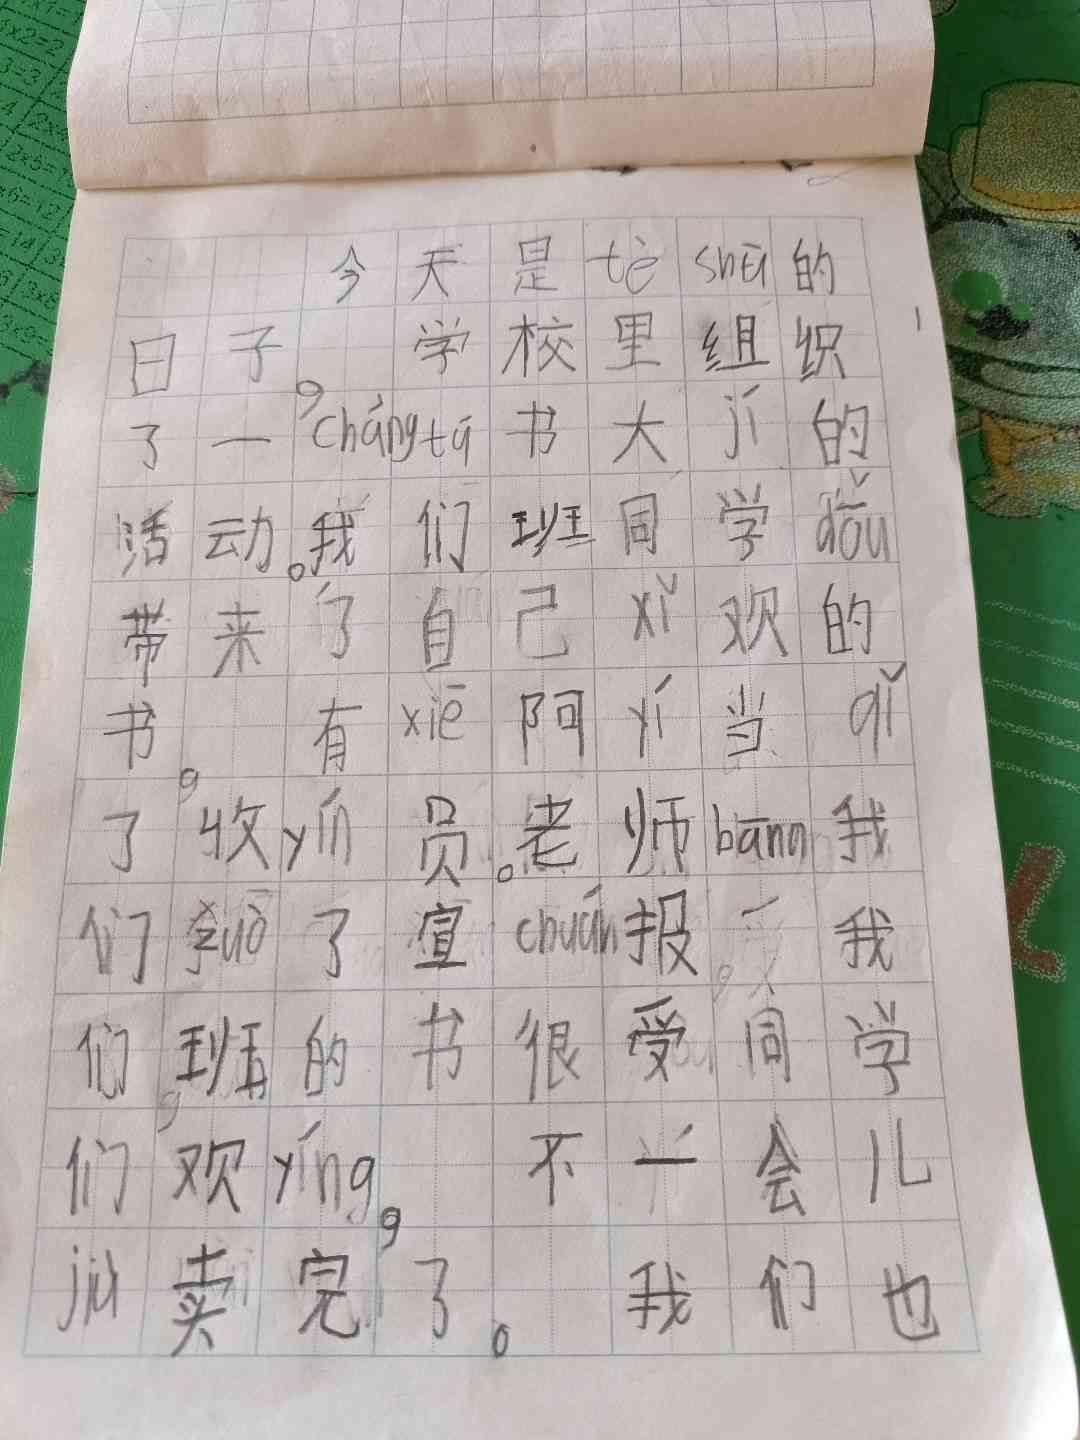 今天是tè shū的
日子,学校里组织
了一cháng tú书大jí的
活动。我们班同学dōu
带来了自己xǐ欢的
书,有xiē阿yí当qǐ
了收yín员。老师bāng我
们zuò了宣chuán报
我
们班的书很受同学
们欢yíng,不一会儿
jiù卖完了。我们也